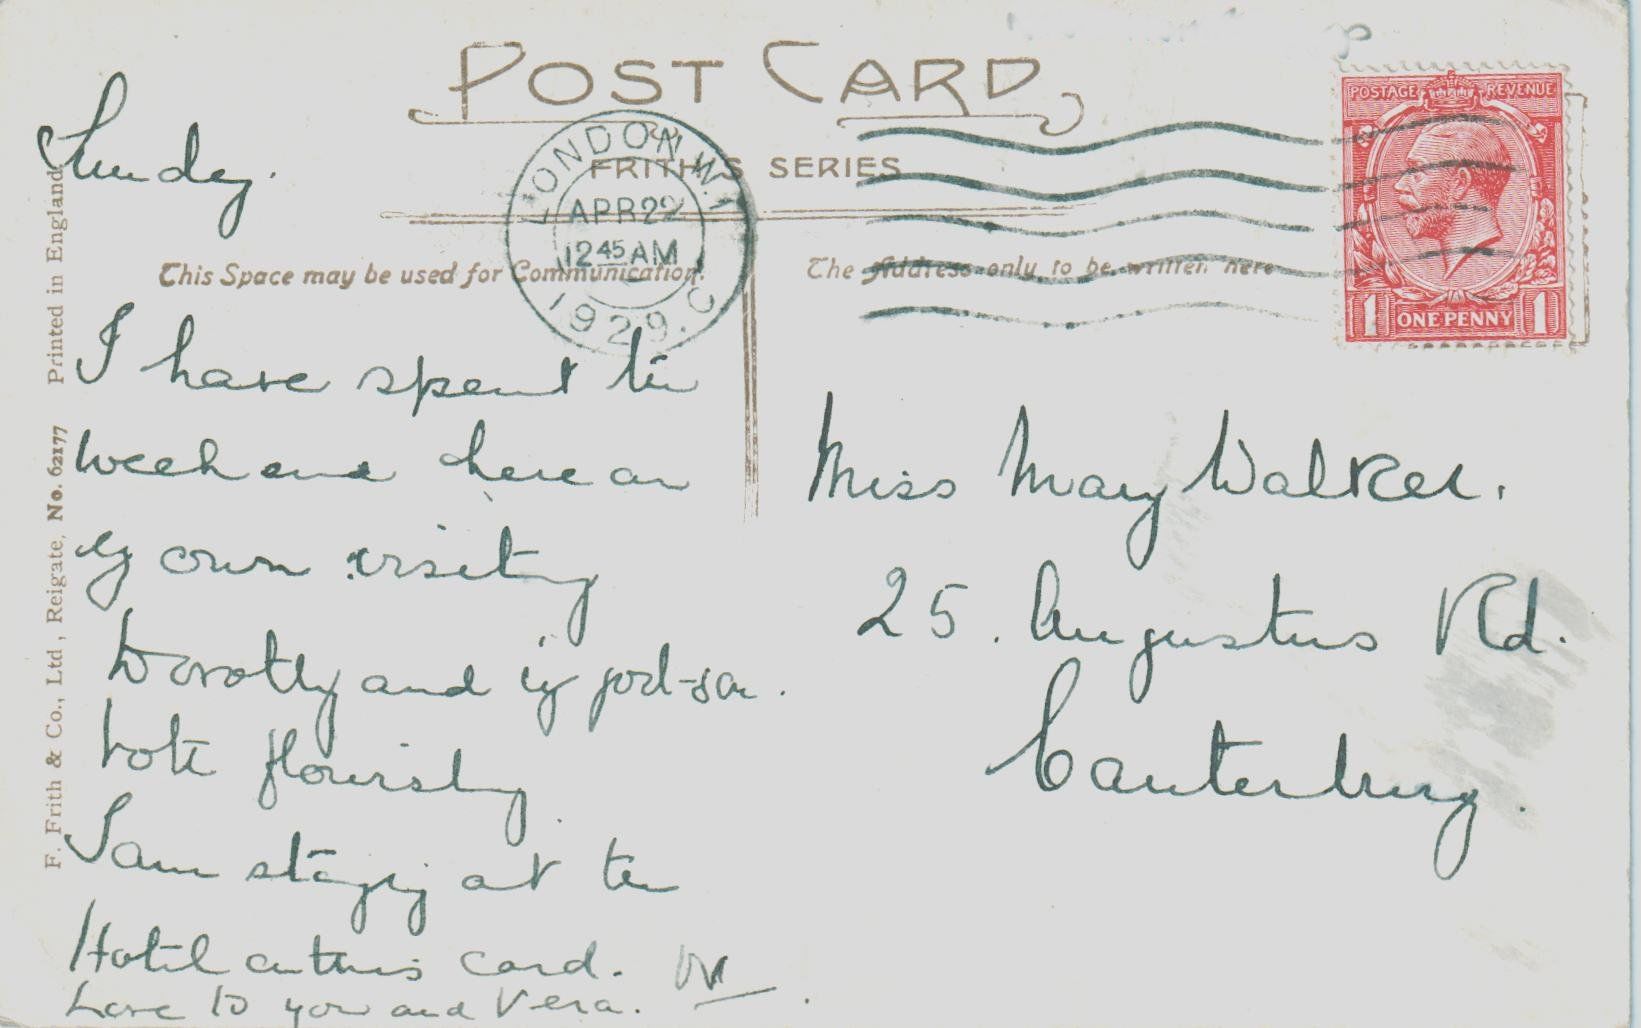 POST CARD
FRITH'S SERIES
LONDON. W.1
APR 29
12 45 AM
1929. C
POSTAGE REVENUE
1 ONE PENNY 1
This Space may be used for Communication.
The Address only to be written here
F. Frith & Co., Ltd, Reigate, No. 62177 Printed in England
Sunday.
I have spent the
weekend here on
my own visiting
Dorothy and my god-son.
both flourishing
I am staying at the
Hotel on this card.
Love to you and Vera.
Miss Mary Walker.
25. Augustus Rd.
Canterbury.